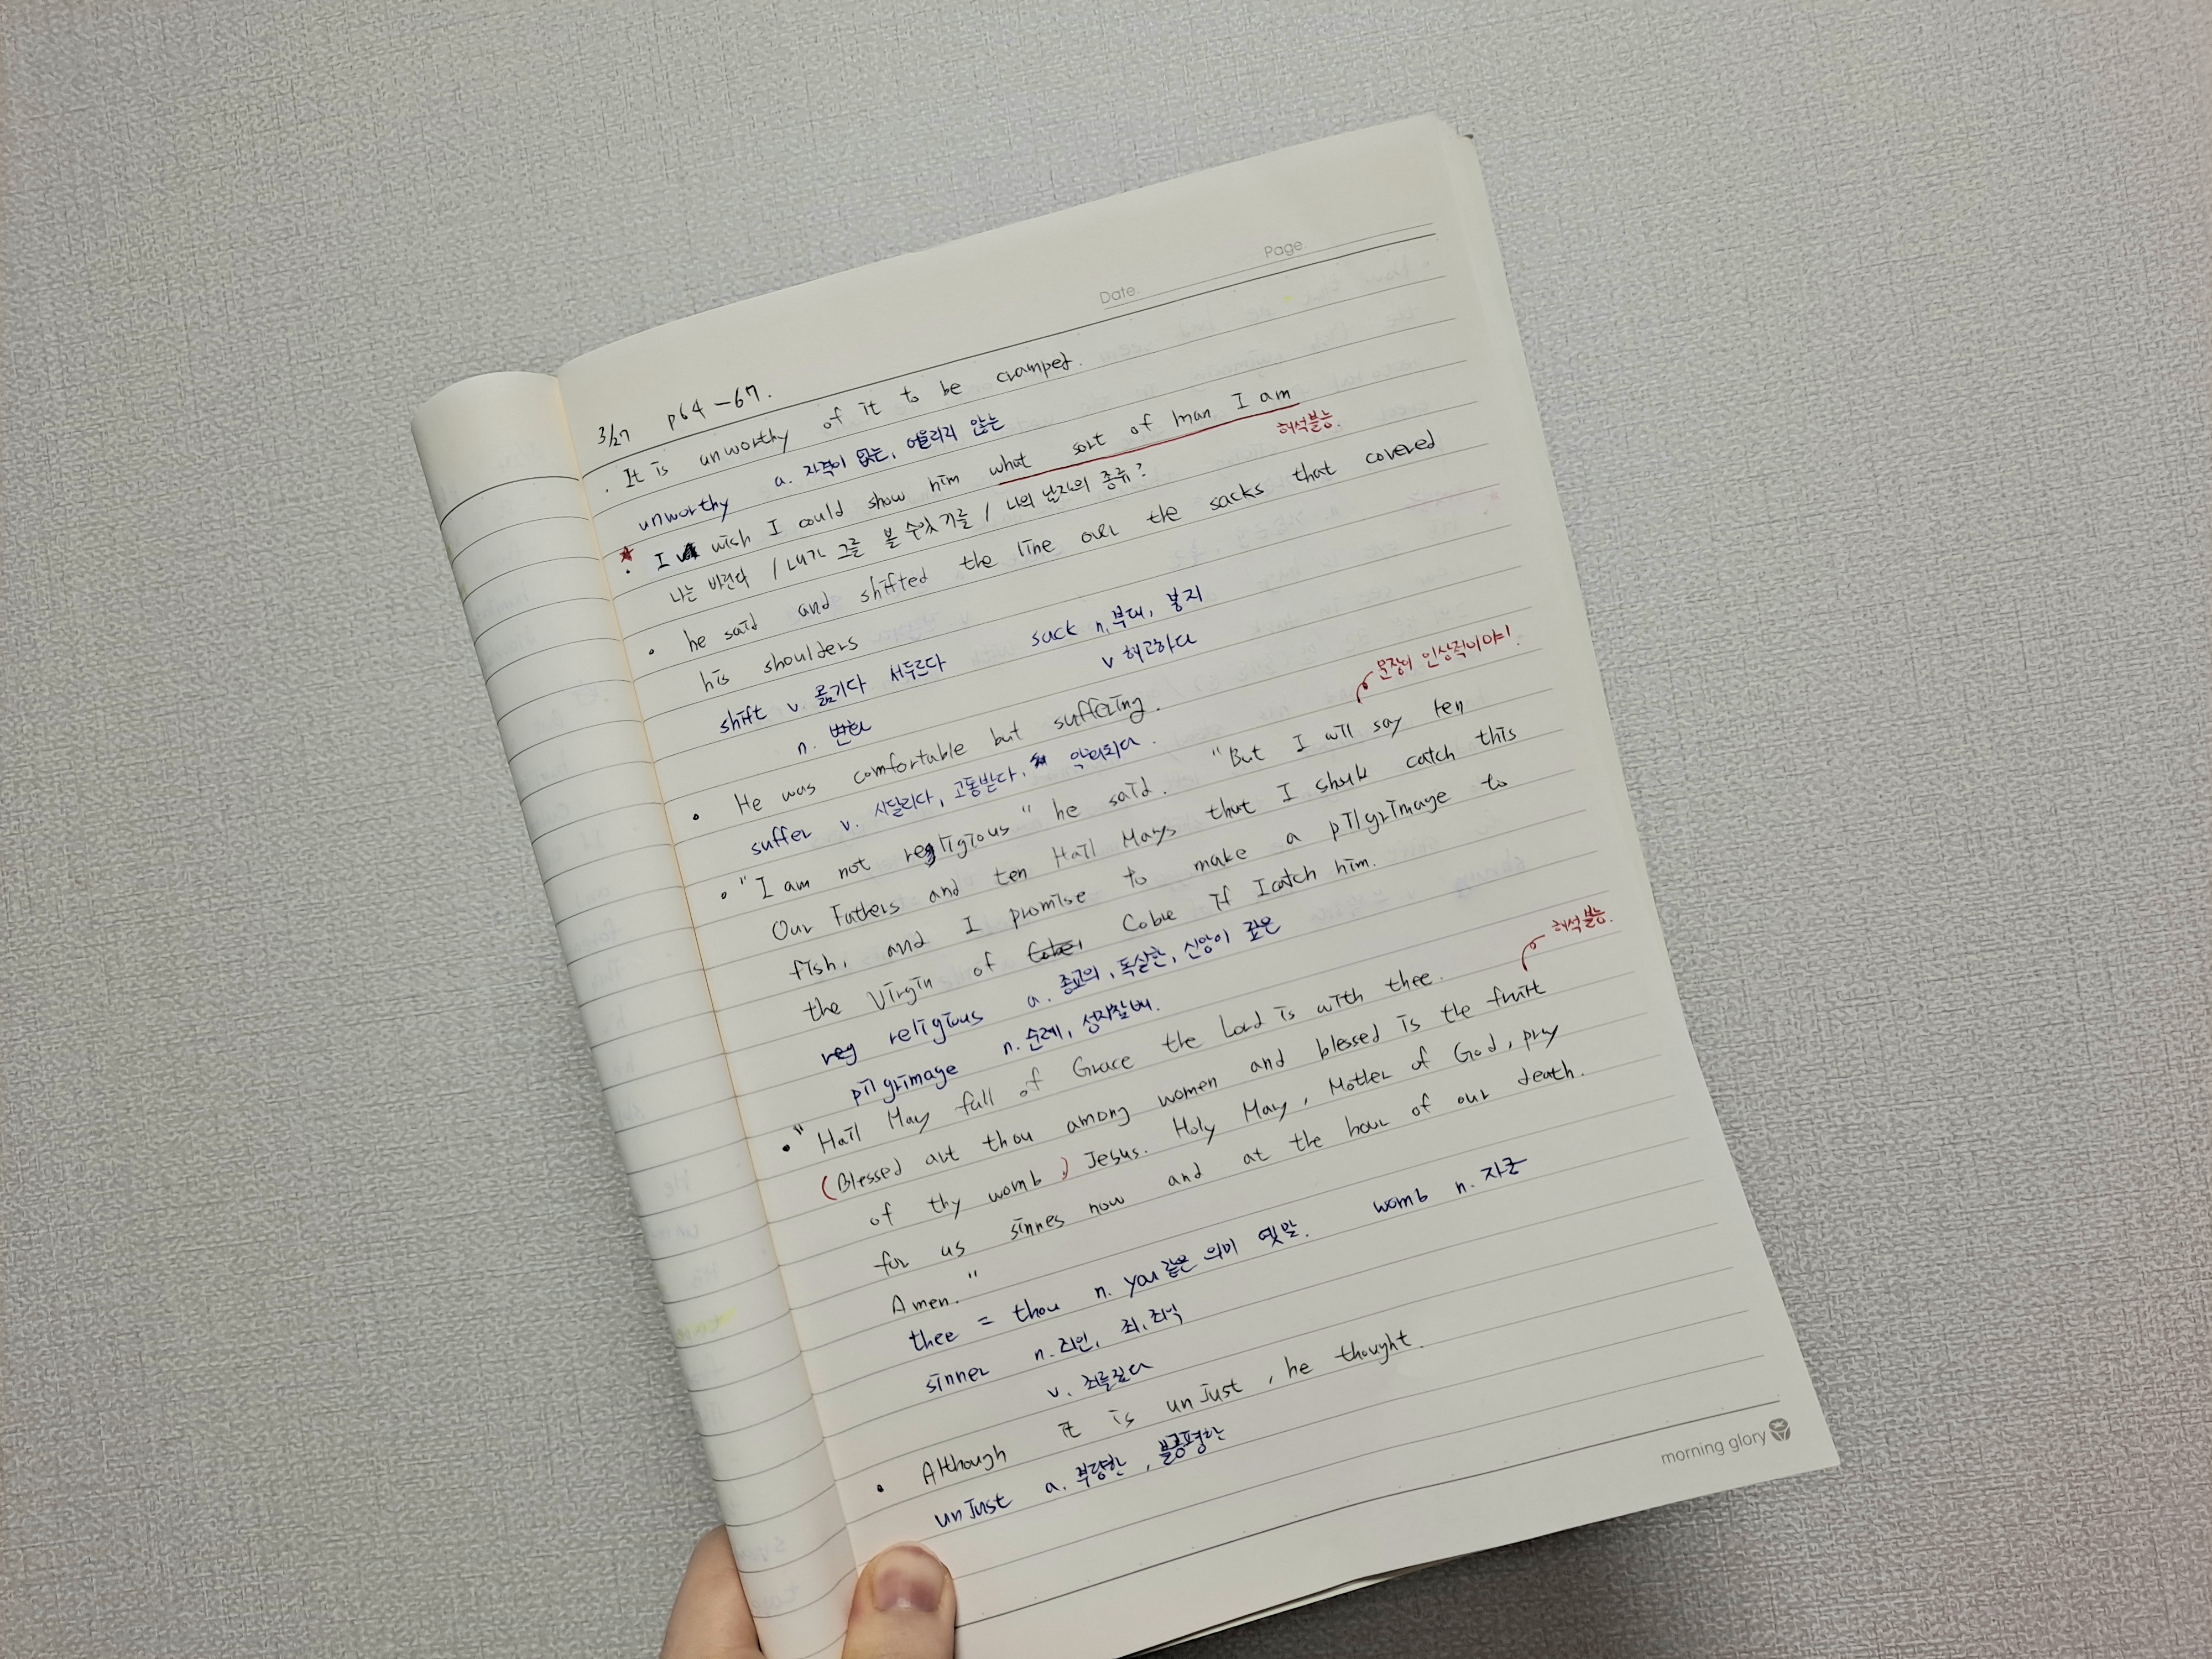 Page.
Date.
3/27 p64-67.
. It is unworthy of it to be cramped.
unworthy a. 자격이 없는, 어울리지 않는
I wish I could show him what sort of man I am
해석불능.
나는 바란다 / 내가 그를 볼 수있기를 / 나의 남자의 종류?
• he said and shifted the line over the sacks that covered
his shoulders
shift v. 옮기다 서두르다 sack n. 부대, 봉지
n. 변화 v 해고하다
• He was comfortable but suffering.
문장이 인상적이야!
suffer v. 시달리다, 고통받다, 악화되다.
• "I am not religious" he said. "But I will say ten
Our Fathers and ten Hail Marys that I should catch this
fish, and I promise to make a pilgrimage to
the Virgin of Cobre if I catch him.
reg religious a. 종교의, 독실한, 신앙이 깊은
해석불능.
pilgrimage n. 순례, 성지참배.
• "Hail Mary full of Grace the Lord is with thee.
(Blessed art thou among women and blessed is the fruit
of thy womb) Jesus. Holy Mary, Mother of God, pray
for us sinnes now and at the hour of our death.
Amen."
thee = thou n. you 같은 의미 옛말. womb n. 자궁
sinner n. 죄인, 죄, 죄악
v. 죄를짓다
• Although it is unjust, he thought.
unjust a. 부당한, 불공평한
morning glory